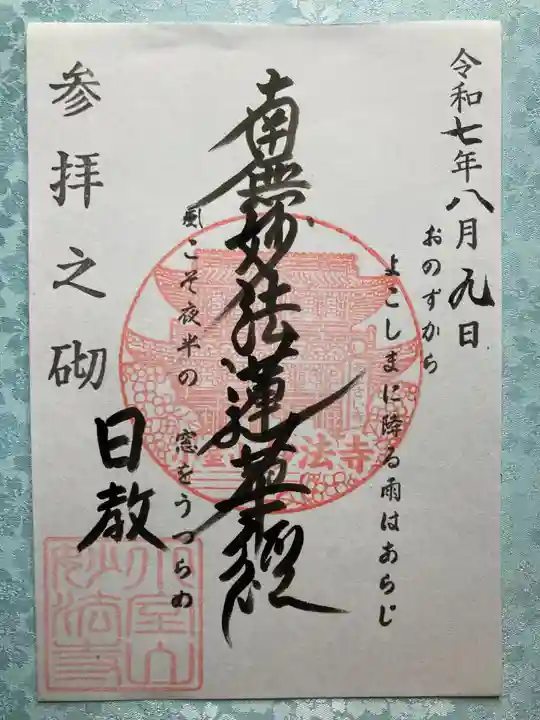 令和七年八月九日
おのずから
よこしまに降る雨はあらじ
南無妙法蓮華經
風こそ夜半の窓をうつらめ
参拝之砌
日教
小室山
妙法寺